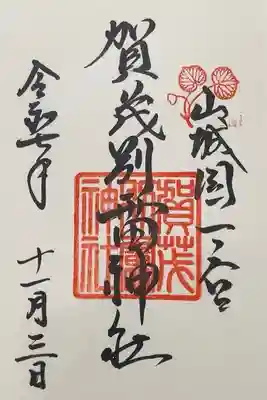 山城国一宮
賀茂別雷神社
賀茂
別雷
神社
令和 年
十一月三日